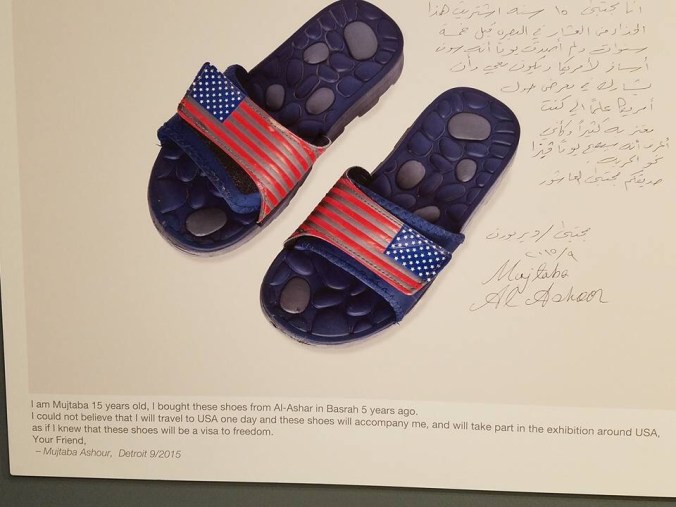 انا مجتبى ١٥ سنه اشتريت هذا
الحذاء من العشار في البصره قبل خمسة
سنوات ولم اصدق يوماً أنه سوف
أسافر لأمريكا ويكون معي وأن
يشارك في معرض حول
أمريكا علماً اني كنت
به كثيراً وكأني
أعرف أنه سيصبح يوماً فيزا
نحو الحريه.
صديقكم مجتبى عاشور
مجتبى / ديربورن
٢٠١٥/٩
Mujtaba
Al Ashoor
I am Mujtaba 15 years old, I bought these shoes from Al-Ashar in Basrah 5 years ago.
I could not believe that I will travel to USA one day and these shoes will accompany me, and will take part in the exhibition around USA,
as if I knew that these shoes will be a visa to freedom.
Your Friend,
– Mujtaba Ashour, Detroit 9/2015